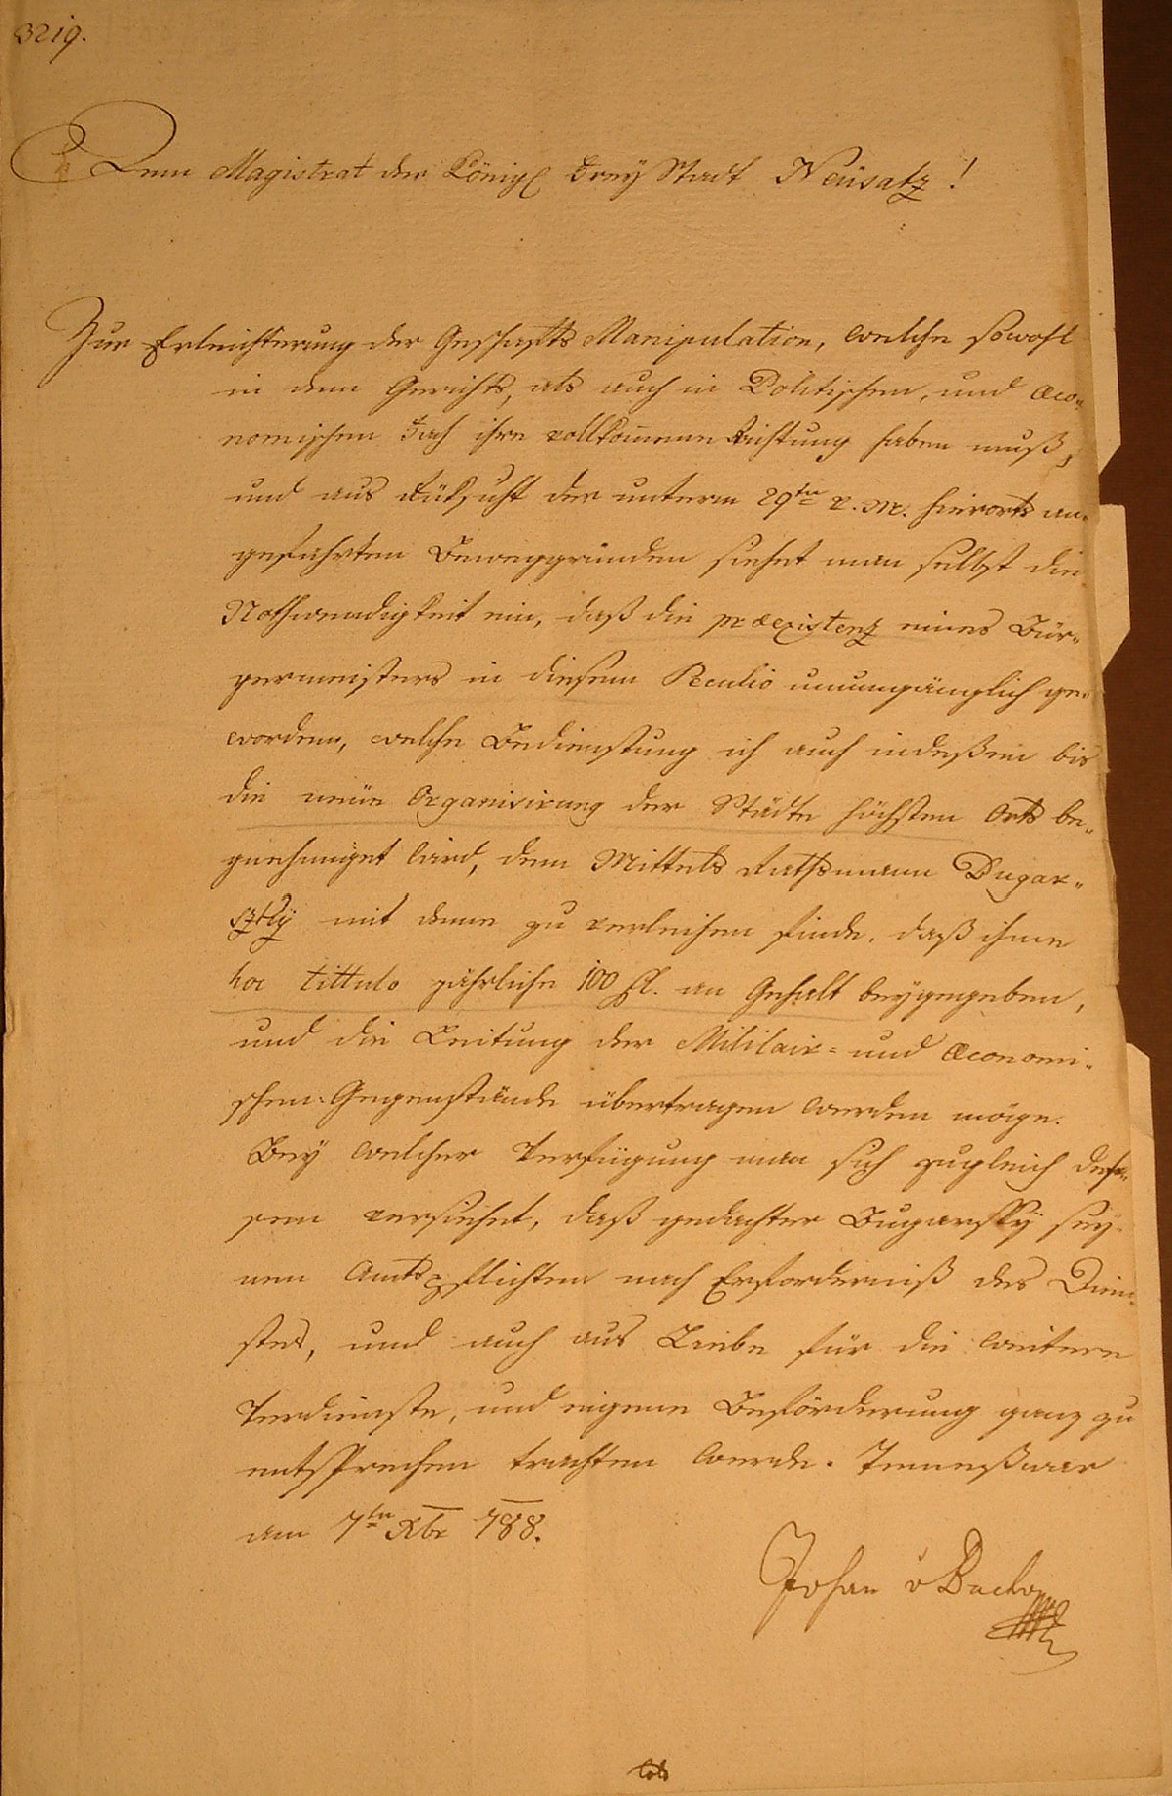 3219.
Dem Magistrat der Königl frey Stadt Neusatz!
Zur Erleichterung der Geschäfts Manipulation, welche sowohl
in dem Gerichts, als auch in Politischen, und œco-
nomischen Fach ihre vollkommene Richtung haben muß,
und aus Rüksicht der unterm 29ten v. M. hierorts an-
geführten Beweggründen siehet man selbst die
Nothwendigkeit ein, daß die præexistenz eines Bür-
germeisters in diesem unumgänglich ge-
worden, welche Bedienstung ich auch indeßen bis
die neüe Organisirung der Städte höchsten Orts be-
gnehmiget wird, dem Mittels Rathsmann Bugar-
szky mit deme zu verleihen finde, daß ihme
hoc tittulo jährliche 100 fl. an Gehalt beygegeben,
und die Leitung der Militair- und Œconomi-
schen Gegenstände übertragen werden möge.
Bey welcher Verfügung man sich zugleich deß-
sen versiehet, daß gedachter Bugarsky sey-
nen Amtspflichten nach Erforderniß des Dien-
stes, und auch aus Liebe für die weitere
Verdienste, und eigene Beförderung ganz zu
entsprechen trachten werde. Temeswar
am 7ten Xbr 788.
Johan v